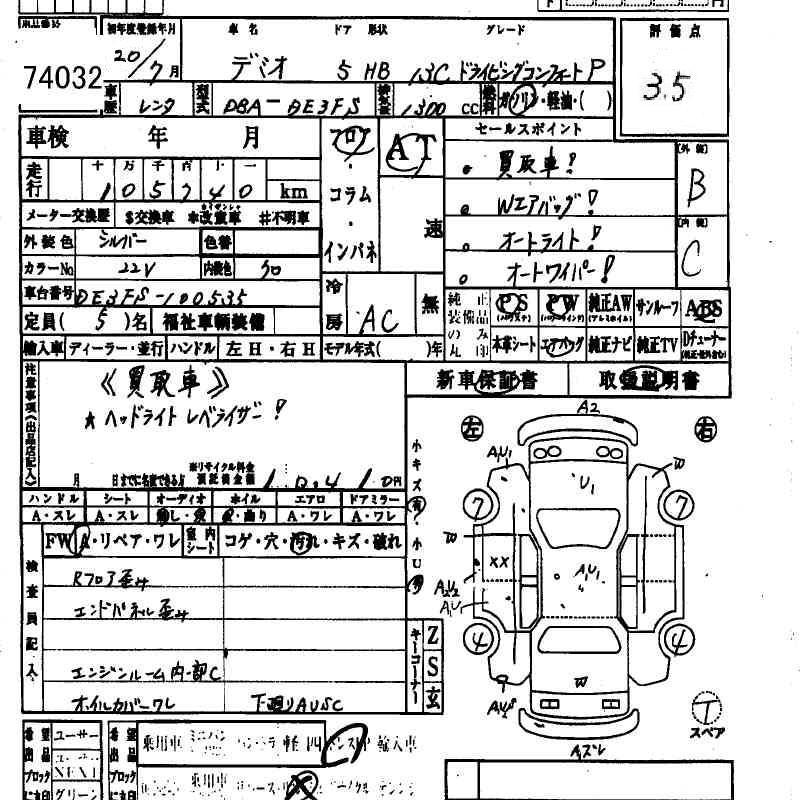 出品番号 初年度登録年月 車名 ドア 形状 グレード 評価点
74032 20/7月 デミオ 5 HB 13C ドライビングコンフォートP 3.5
車歴 レンタ 型式 DBA-DE3FS 排気量 1300cc 燃料 ガソリン・軽油・( )
車検 年 月 フロア・コラム・インパネ AT 速 セールスポイント
走行 十 万 千 百 十 一
105740 km
・買取車!
・Wエアバッグ!
・オートライト!
・オートワイパー!
外装 B
内装 C
メーター交換歴 $交換車 *改ザン車 #不明車
外装色 シルバー 色替
カラーNo 22V 内装色 クロ
車台番号 DE3FS-100535
冷房 AC 無
定員( 5 )名 福祉車輌装備
純正装備品のみ丸印 PS PW 純正AW サンルーフ ABS
本革シート エアバッグ 純正ナビ 純正TV Dチューナー
輸入車 ディーラー・並行 ハンドル 左H・右H モデル年式( )年
注意事項(出品店記入)
《買取車》
★ヘッドライトレベライザー!
新車保証書 取扱説明書
月 日までに名変できる方 ※リサイクル料金預託済金額 10410円
ハンドル シート オーディオ ホイル エアロ ドアミラー
A・スレ A・スレ 無し・欠 A・曲り A・ワレ A・ワレ
FW A・リペア・ワレ 室内シート コゲ・穴・汚れ・キズ・破れ
検査員記入
Rフロア歪み
エンドパネル歪み
エンジンルーム内部C
ホイルカバーワレ 下廻りAUSC
小キズ有・小U有
キーコーナー Z S 玄
左 右
A2
A,U1 W
U1
7 7
W XX A,U1
A,U2
A,U1
4 4
W
Aズレ
T
スペア
希望出品ブロックに丸印 ユーザー
NEXT
グリーン
乗用車 ミニバン 軽 四 輸入車
乗用車